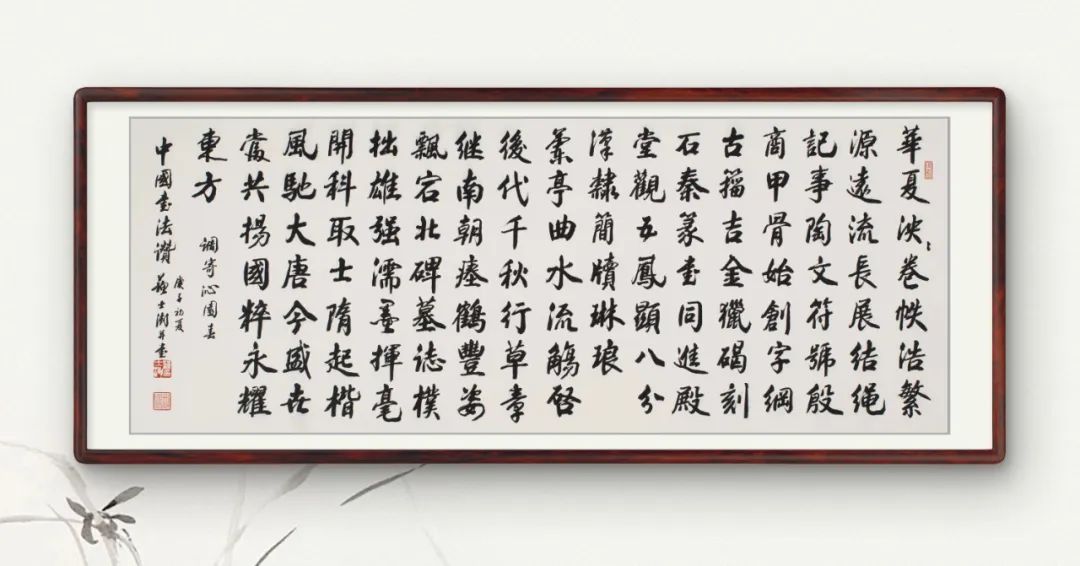 華夏泱〻卷帙浩繁
源遠流長展结绳
記事陶文符號殷
商甲骨始創字綱
古籀吉金獵碣刻
石秦篆書同進殿
堂觀五鳳顯八分
漢隸簡牘琳琅
蘭亭曲水流觴啓
後代千秋行草章
继南朝瘞鶴豐姿
飄宕北碑墓誌樸
拙雄强濡墨揮毫
開科取士隋起楷
風馳大唐今盛世
當共揚國粹永耀
東方
調寄沁園春
中國書法讚
庚子初夏
蘇士澍并書